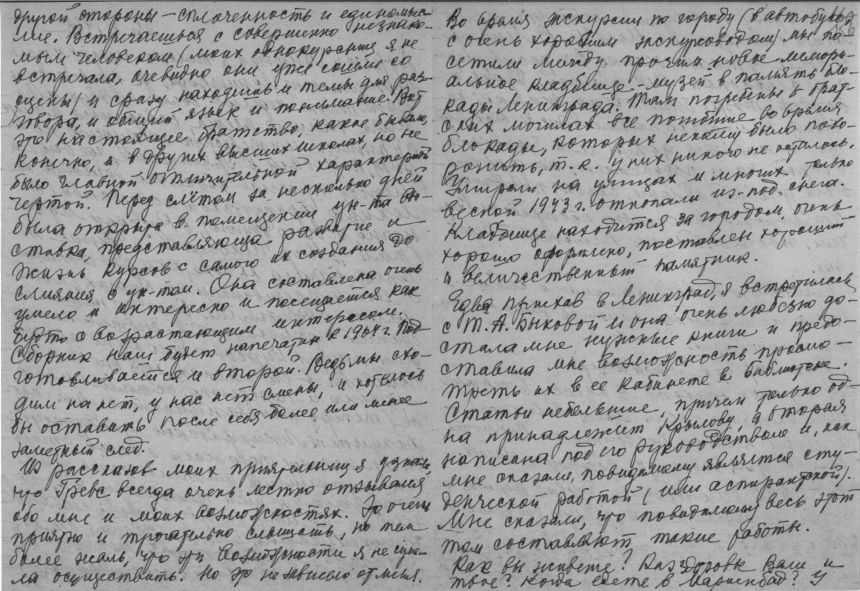 другой стороны – сплоченность и единомыс-
лие. Встречаешься с совершенно незнако-
мым человеком (моих однокурсниц я не
встречала, очевидно они уже сошли со
сцены) и сразу находишь и темы для раз-
говора, и общий язык и понимание. Вот
это настоящее братство, какое бывает,
конечно, и в других высших школах, но не
было главной отличительной характерной
чертой. Перед слётом за несколько дней
была открыта в помещении ун-та вы-
ставка, представляюща развитие и
жизнь курсов с самого их создания до
слияния с ун-том. Она составлена очень
умело и интересно и посещается как
будто с возрастающим интересом.
Сборник наш будет напечатан к 1964 г. Под
готовливается и второй. Ведь мы схо-
дим на нет, у нас нет смены, и хотелось
бы оставить после себя более или менее
заметный след.
Из рассказов моих приятельниц я узнала,
что Гревс всегда очень лестно отзывался
обо мне и моих возможностях. Это очень
приятно и трогательно слышать, но тем
более жаль, что эти возможности я не суме-
ла осуществить. Но это не зависело от меня.
Во время экскурсии по городу (в автобусе
с очень хорошим экскурсоводом) мы по-
сетили между прочим новое мемори-
альное кладбище-музей в память бло-
кады Ленинграда. Там погребены в брат-
ских могилах все погибшие во время
блокады, которых некому было похо-
ронить, т.к. у них никого не осталось.
Умирали на улицах и многих только
весной 1943 г. откопали из-под снега.
Кладбище находится за городом, очень
хорошо оформлено, поставлен хороший
и величественный памятник.
Едва приехав в Ленинград, я встретилась
с Т. А. Быковой и она очень любезно до-
стала мне нужные книги и предо-
ставила мне возможность просмо-
треть их в ее кабинете в библиотеке.
Статьи небольшие, причем только од-
на принадлежит Крылову, а вторая
написана под его руководством и, как
мне сказали, повидимому является сту-
денческой работой (или аспирантской).
Мне сказали, что повидимому весь этот
том составляют такие работы.
Как вы живете? Как здоровье Вали и
твое? Когда едете в Мариенбад? У